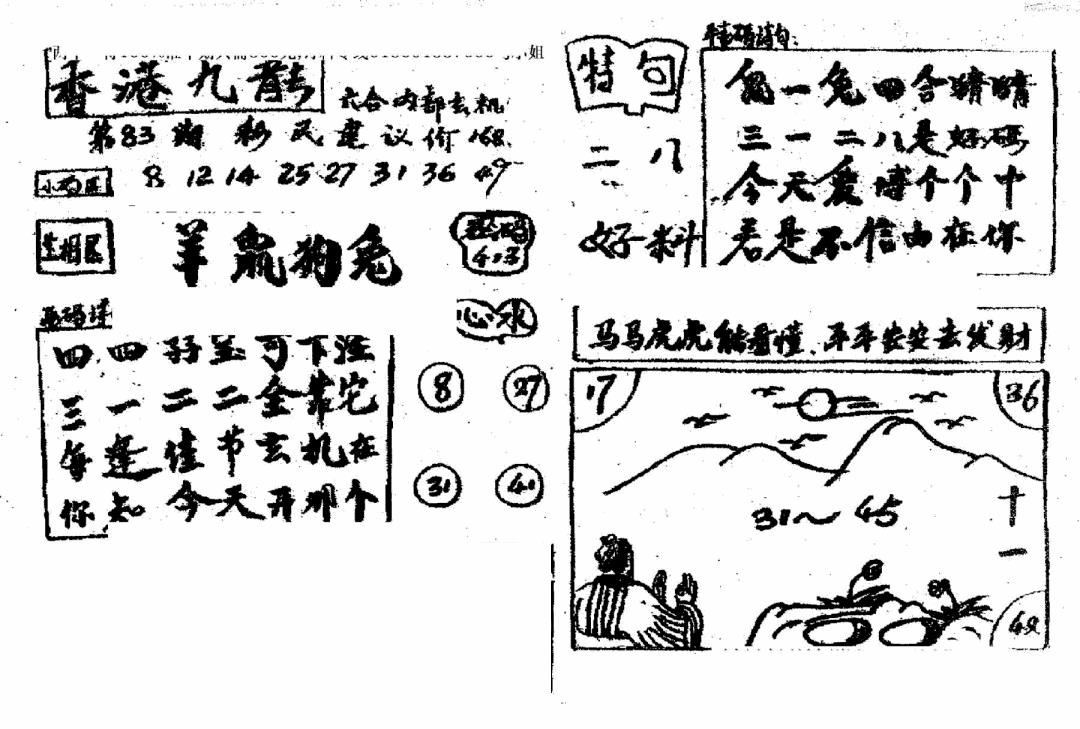 香港九龍
六合内部玄机
第83期 彩民建议价168.
8 12 14 25 27 31 36 49
生相区
羊鼠狗兔
4.3
心水
四.四孖並可下注
三一二二全靠它
每逢佳节玄机在
你知今天开那个
8 27
31 41
特句
二八
好料
平特码诗句:
兔四合
三一二八是好码
今天爱博个个中
若是不信由在你
马马虎虎能看懂.平平安安去发财
17 36
31~45
十一